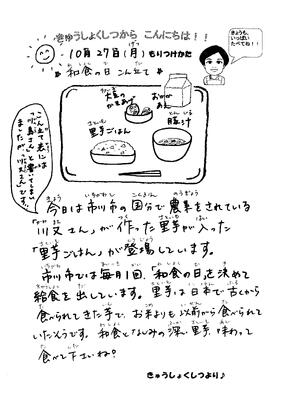 きゅうしょくしつから こんにちは！！
10月27日(月) もりつけかた
きょうも、
いっぱい
たべてね！！
★ 和食の日 こん立て ★
大豆の
おかか
あえ
里芋ごはん
豚汁
こん立て表には
と書いて
ましたが
今日は市川市の国分で農業をされている
「川又さん」が作った里芋が入った
「里芋ごはん」が登場しています。
市川市では毎月1回、「和食の日」を決めて
給食を出しています。里芋は日本で古くから
食べられてきた芋で、お米よりも以前から食べられて
いたそうです。和食となじみの深い里芋、味わって
食べて下さいね♡
きゅうしょくしつより♪